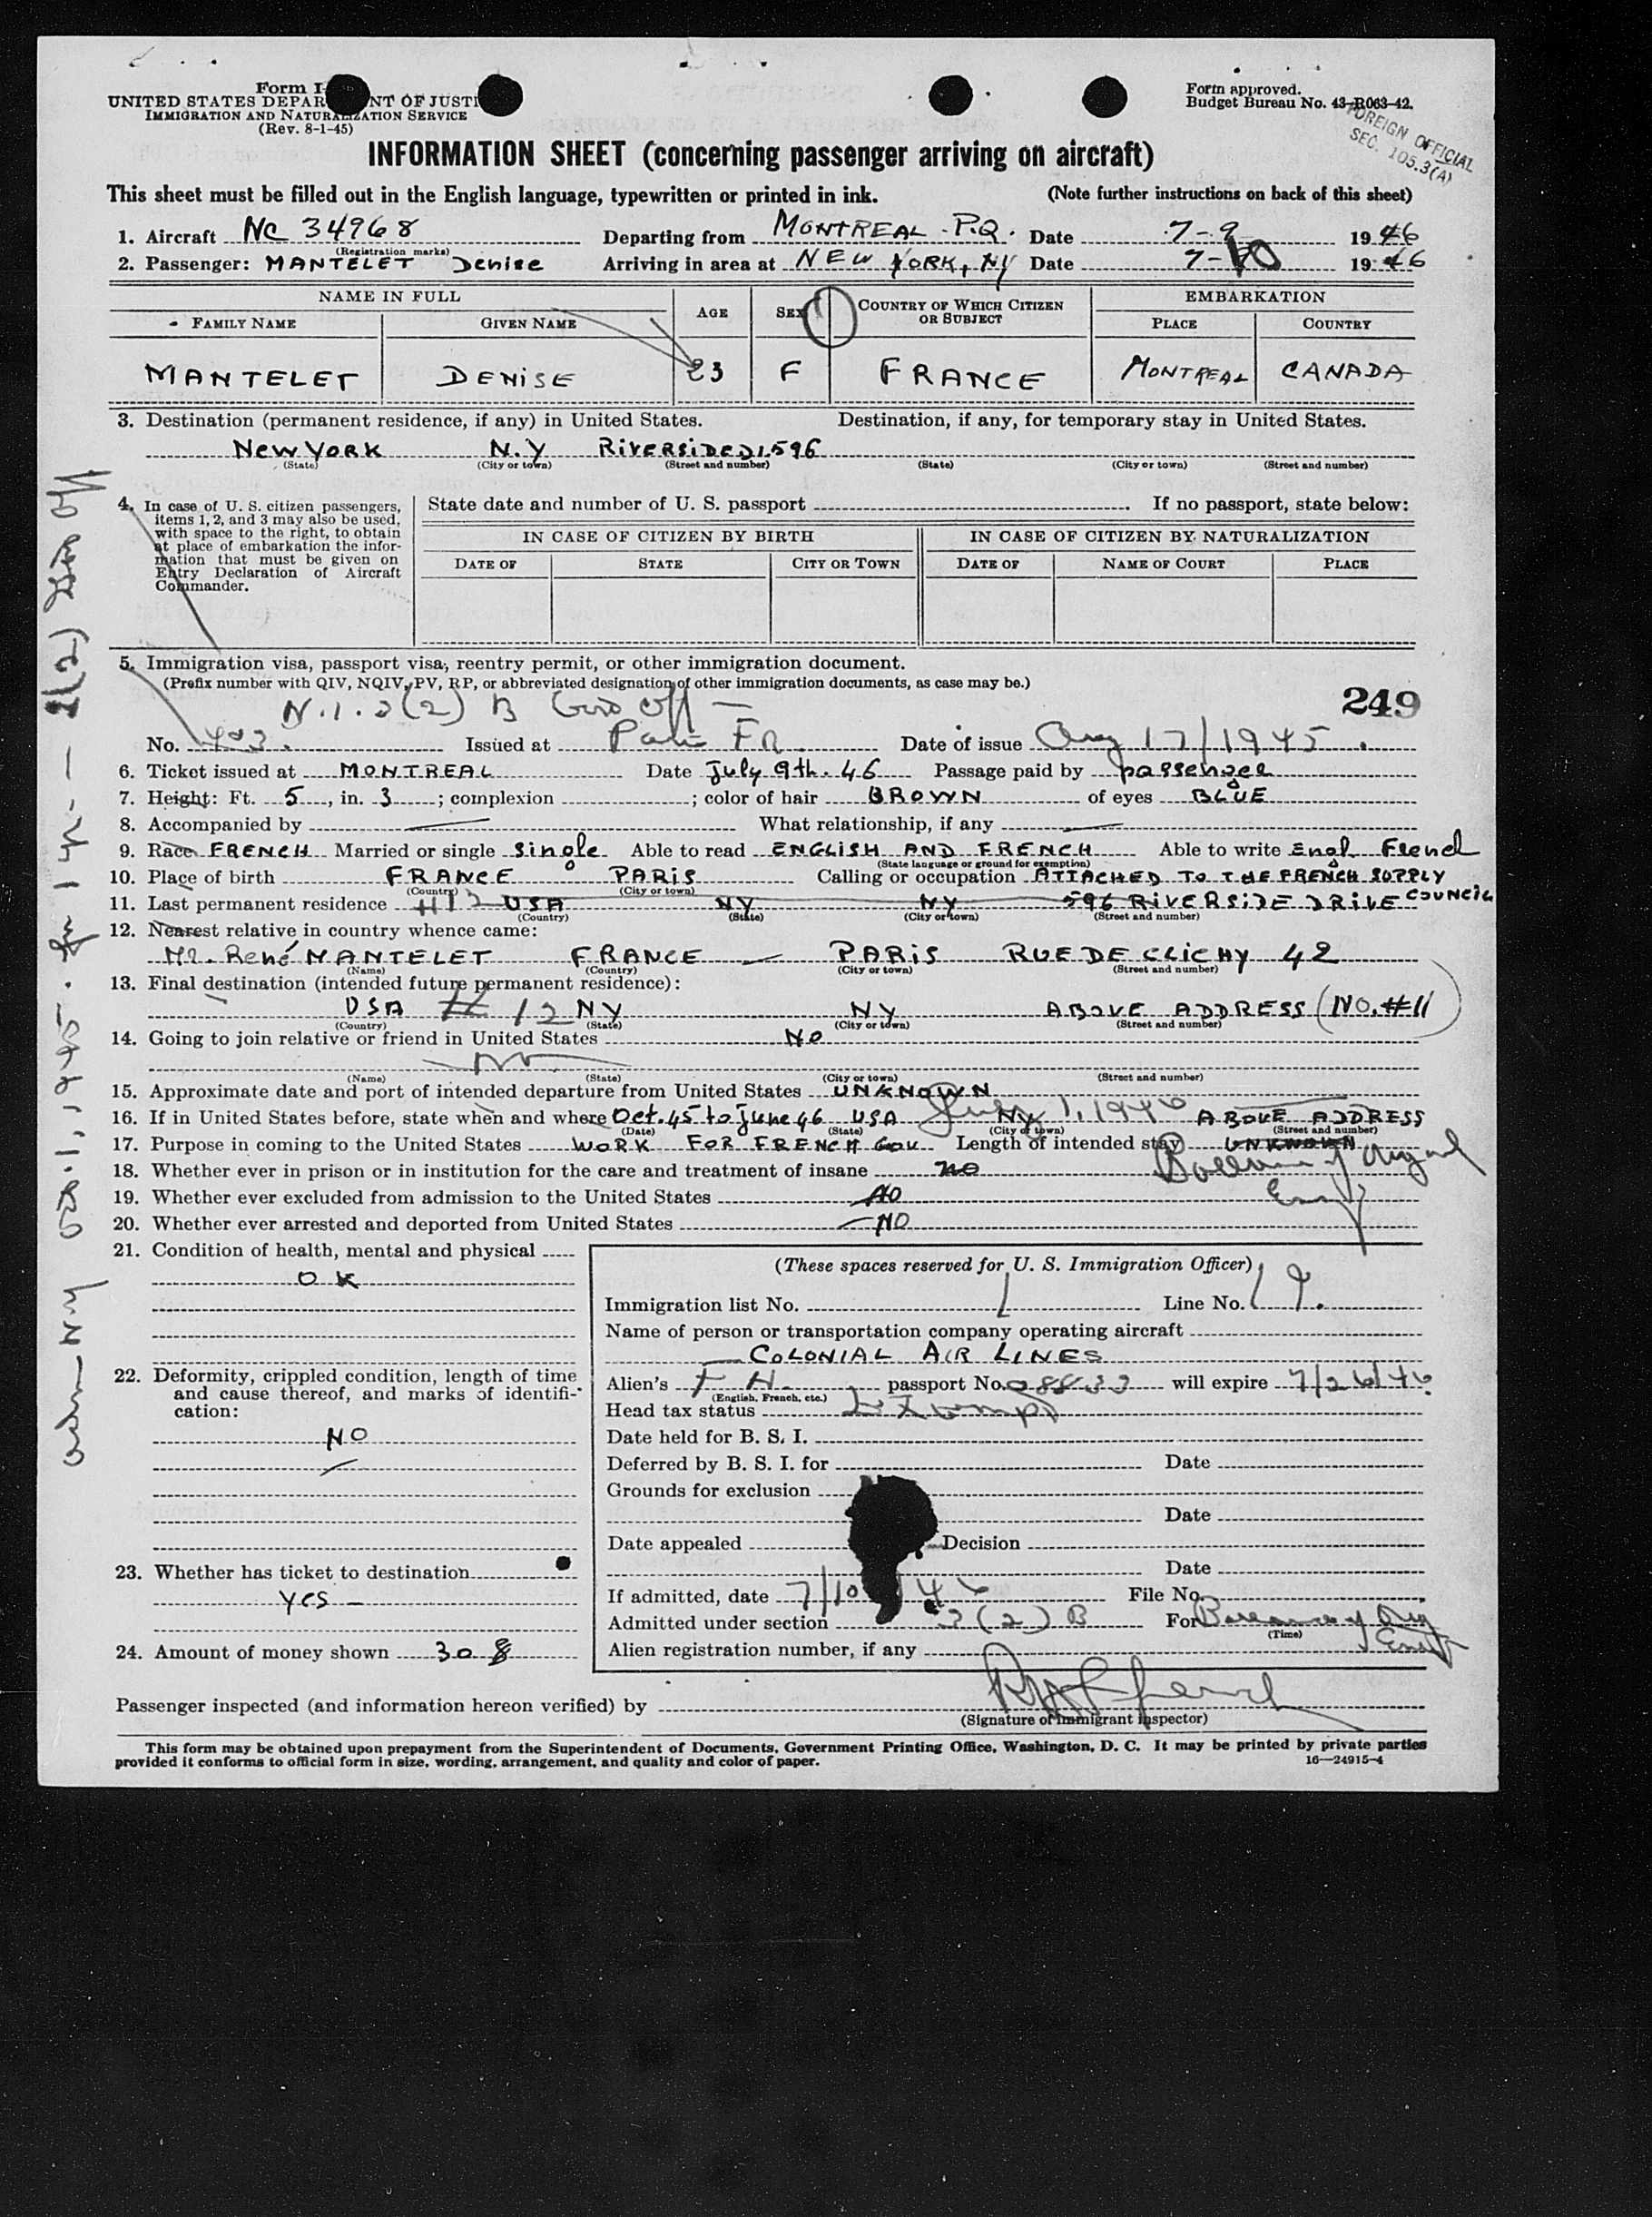 Form I-
UNITED STATES DEPAR NT OF JUSTI
IMMIGRATION AND NATURALIZATION SERVICE
(Rev. 8-1-45)
Form approved.
Budget Bureau No. 43-R063-42.
FOREIGN OFFICIAL
SEC. 105.3(A)
INFORMATION SHEET (concerning passenger arriving on aircraft)
This sheet must be filled out in the English language, typewritten or printed in ink. (Note further instructions on back of this sheet)
1. Aircraft NC 34968 Departing from MONTREAL P.Q. Date 7-9 1946
(Registration marks)
2. Passenger: MANTELET Denise Arriving in area at NEW YORK, NY Date 7-10 1946
NAME IN FULL AGE SEX COUNTRY OF WHICH CITIZEN OR SUBJECT EMBARKATION
FAMILY NAME GIVEN NAME PLACE COUNTRY
MANTELET DENISE 23 F FRANCE MONTREAL CANADA
3. Destination (permanent residence, if any) in United States. Destination, if any, for temporary stay in United States.
New York N.Y Riverside D. 596
(State) (City or town) (Street and number) (State) (City or town) (Street and number)
4. In case of U. S. citizen passengers, items 1, 2, and 3 may also be used, with space to the right, to obtain at place of embarkation the information that must be given on Entry Declaration of Aircraft Commander.
State date and number of U. S. passport If no passport, state below:
IN CASE OF CITIZEN BY BIRTH IN CASE OF CITIZEN BY NATURALIZATION
DATE OF STATE CITY OR TOWN DATE OF NAME OF COURT PLACE
5. Immigration visa, passport visa, reentry permit, or other immigration document.
(Prefix number with QIV, NQIV, PV, RP, or abbreviated designation of other immigration documents, as case may be.)
249
N.I. 3(2) B Gov Off
No. 403. Issued at Paris FR Date of issue Aug 17/1945.
6. Ticket issued at MONTREAL Date July 9th. 46 Passage paid by passenger
7. Height: Ft. 5, in. 3; complexion ; color of hair BROWN of eyes BLUE
8. Accompanied by — What relationship, if any —
9. Race FRENCH Married or single single Able to read ENGLISH AND FRENCH Able to write Engl French
(State language or ground for exemption)
10. Place of birth FRANCE PARIS Calling or occupation ATTACHED TO THE FRENCH SUPPLY COUNCIL
(Country) (City or town)
11. Last permanent residence USA NY NY 596 RIVERSIDE DRIVE
(Country) (State) (City or town) (Street and number)
12. Nearest relative in country whence came:
Mr. René MANTELET FRANCE — PARIS RUE DE CLICHY 42
(Name) (Country) (City or town) (Street and number)
13. Final destination (intended future permanent residence):
USA # 12 NY NY ABOVE ADDRESS (NO. #11)
(Country) (State) (City or town) (Street and number)
14. Going to join relative or friend in United States NO
No
(Name) (State) (City or town) (Street and number)
15. Approximate date and port of intended departure from United States UNKNOWN
16. If in United States before, state when and where Oct. 45 to June 46 USA NY July 1, 1946 ABOVE ADDRESS
(Date) (State) (City or town) (Street and number)
17. Purpose in coming to the United States WORK FOR FRENCH GOV Length of intended stay UNKNOWN
18. Whether ever in prison or in institution for the care and treatment of insane no
19. Whether ever excluded from admission to the United States NO
20. Whether ever arrested and deported from United States NO
21. Condition of health, mental and physical
OK
22. Deformity, crippled condition, length of time and cause thereof, and marks of identification:
NO
23. Whether has ticket to destination
yes —
24. Amount of money shown 30 $
(These spaces reserved for U. S. Immigration Officer)
Immigration list No. 1 Line No. 9.
Name of person or transportation company operating aircraft
COLONIAL AIR LINES
Alien's FH. passport No. 08833 will expire 7/26/46
(English, French, etc.)
Head tax status Exempt
Date held for B. S. I.
Deferred by B. S. I. for Date
Grounds for exclusion
Date
Date appealed Decision
Date
If admitted, date 7/10/46 File No.
Admitted under section 3(2) B For
(Time)
Alien registration number, if any
Passenger inspected (and information hereon verified) by
(Signature of Immigrant Inspector)
This form may be obtained upon prepayment from the Superintendent of Documents, Government Printing Office, Washington, D. C. It may be printed by private parties
provided it conforms to official form in size, wording, arrangement, and quality and color of paper. 16—24915-4